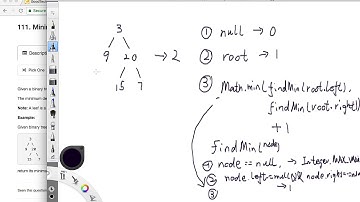 111. Mini
Descriptio
Pick One
Given a binary tree
The minimum de
Note: A leaf is a
Example:
Given binary tree
3
/ \
9 20
/ \
15 7
return its minimum
Seen the question
3
9 20 → 2
15 7
① null → 0
② root → 1
③ Math.min(findMin(root.left),
findMin(root.right))
+ 1
findMin(node)
① node == null, → Integer.MAX_VALU
② node.left==null && node.right==null
→ 1
③